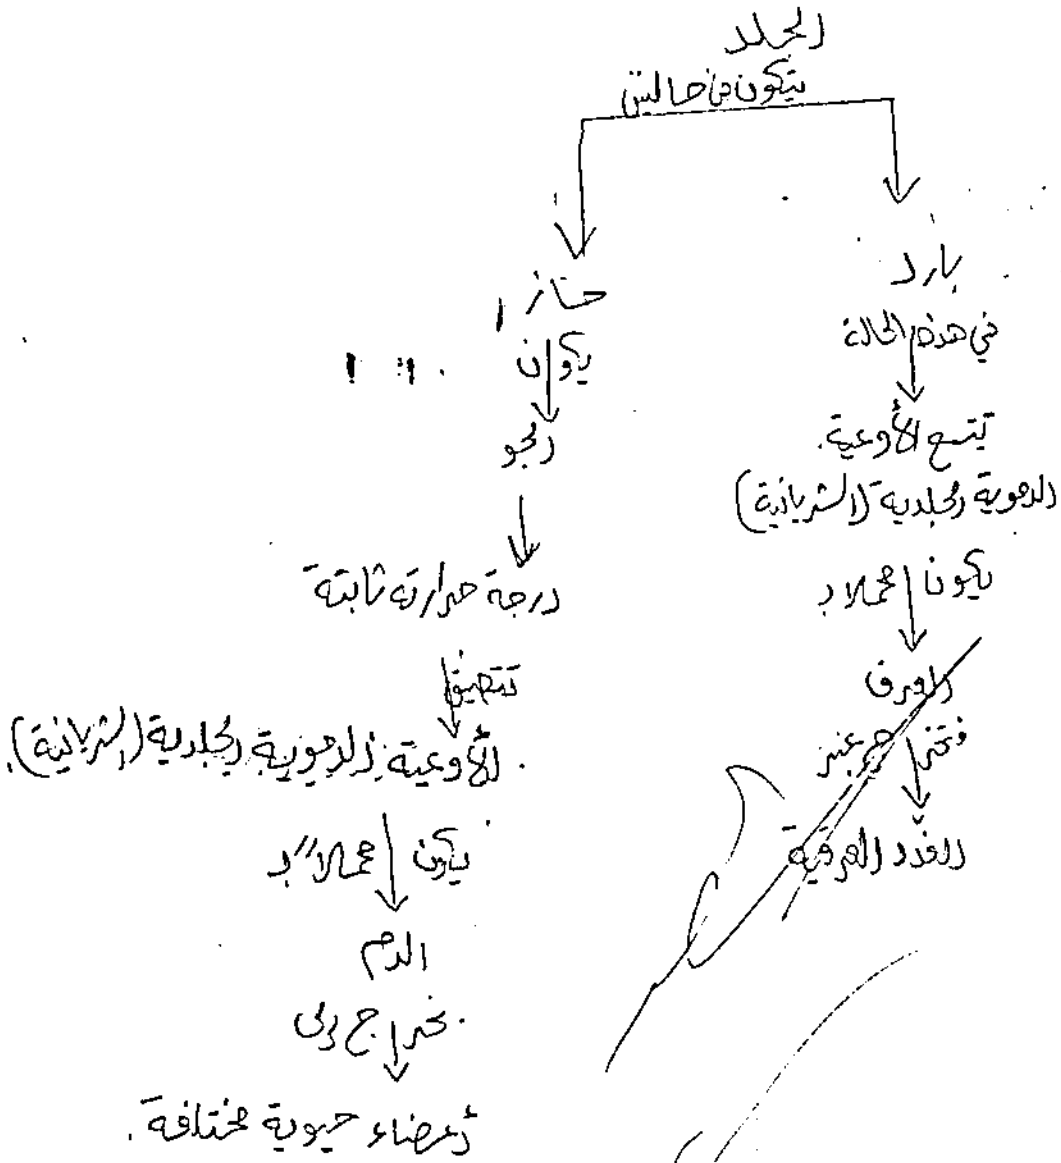 الجلد
يتكون من حالتين
بارد
في هذه الحالة
تتسع الأوعية
الدموية الجلدية (الشريانية)
يكون محملا بـ
العرق
فتخرج عبر
الغدد العرقية
حار
يكون
الجو
درجة حرارته ثابتة
تتضيق
الأوعية الدموية الجلدية (الشريانية).
يكون محملا بـ
الدم
يخرج إلى
أعضاء حيوية مختلفة.